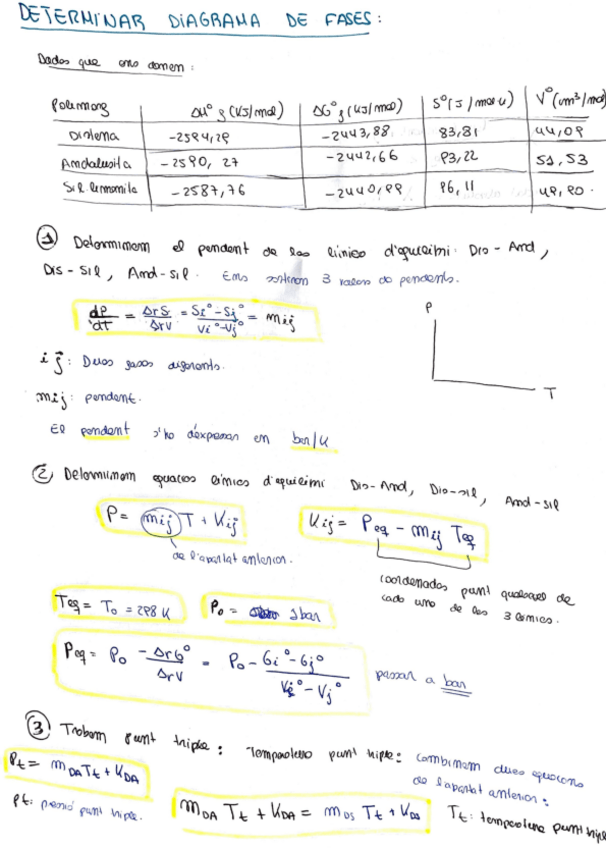 DETERMINAR DIAGRAMA DE FASES:
Dades que ens donen:
Polimorf ΔH°f (KJ/mol) ΔG°f (KJ/mol) S° (J/mol·K) V° (cm³/mol)
Distena -2594,29 -2443,88 83,81 44,09
Andalusita -2590,27 -2442,66 93,22 51,53
Sil·limanita -2587,76 -2440,99 96,11 49,90
① Determinem el pendent de les línies d'equilibri Dis-And,
Dis-Sil, And-Sil. Ens sortiran 3 valors de pendents.
dP/dT = ΔrS/ΔrV = Si°-Sj°/Vi°-Vj° = mij
P
T
i j: Dues fases diferents.
mij: pendent.
El pendent s'ha d'expressar en bar/K
② Determinem equacions línies d'equilibri Dis-And, Dis-sil, And-sil
P = mij T + Kij
Kij = Peq - mij Teq
de l'apartat anterior.
coordenades punt qualsevol de
cada una de les 3 línies.
Teq = T0 = 298 K
P0 = 1 bar
Peq = P0 - ΔrG°/ΔrV = P0 - Gi°-Gj°/Vi°-Vj° passar a bar
③ Trobem punt triple: Temperatura punt triple: combinem dues equacions
de l'apartat anterior:
Pt = mDA Tt + KDA
Pt: pressió punt triple.
mDA Tt + KDA = mDS Tt + KDS
Tt: temperatura punt triple